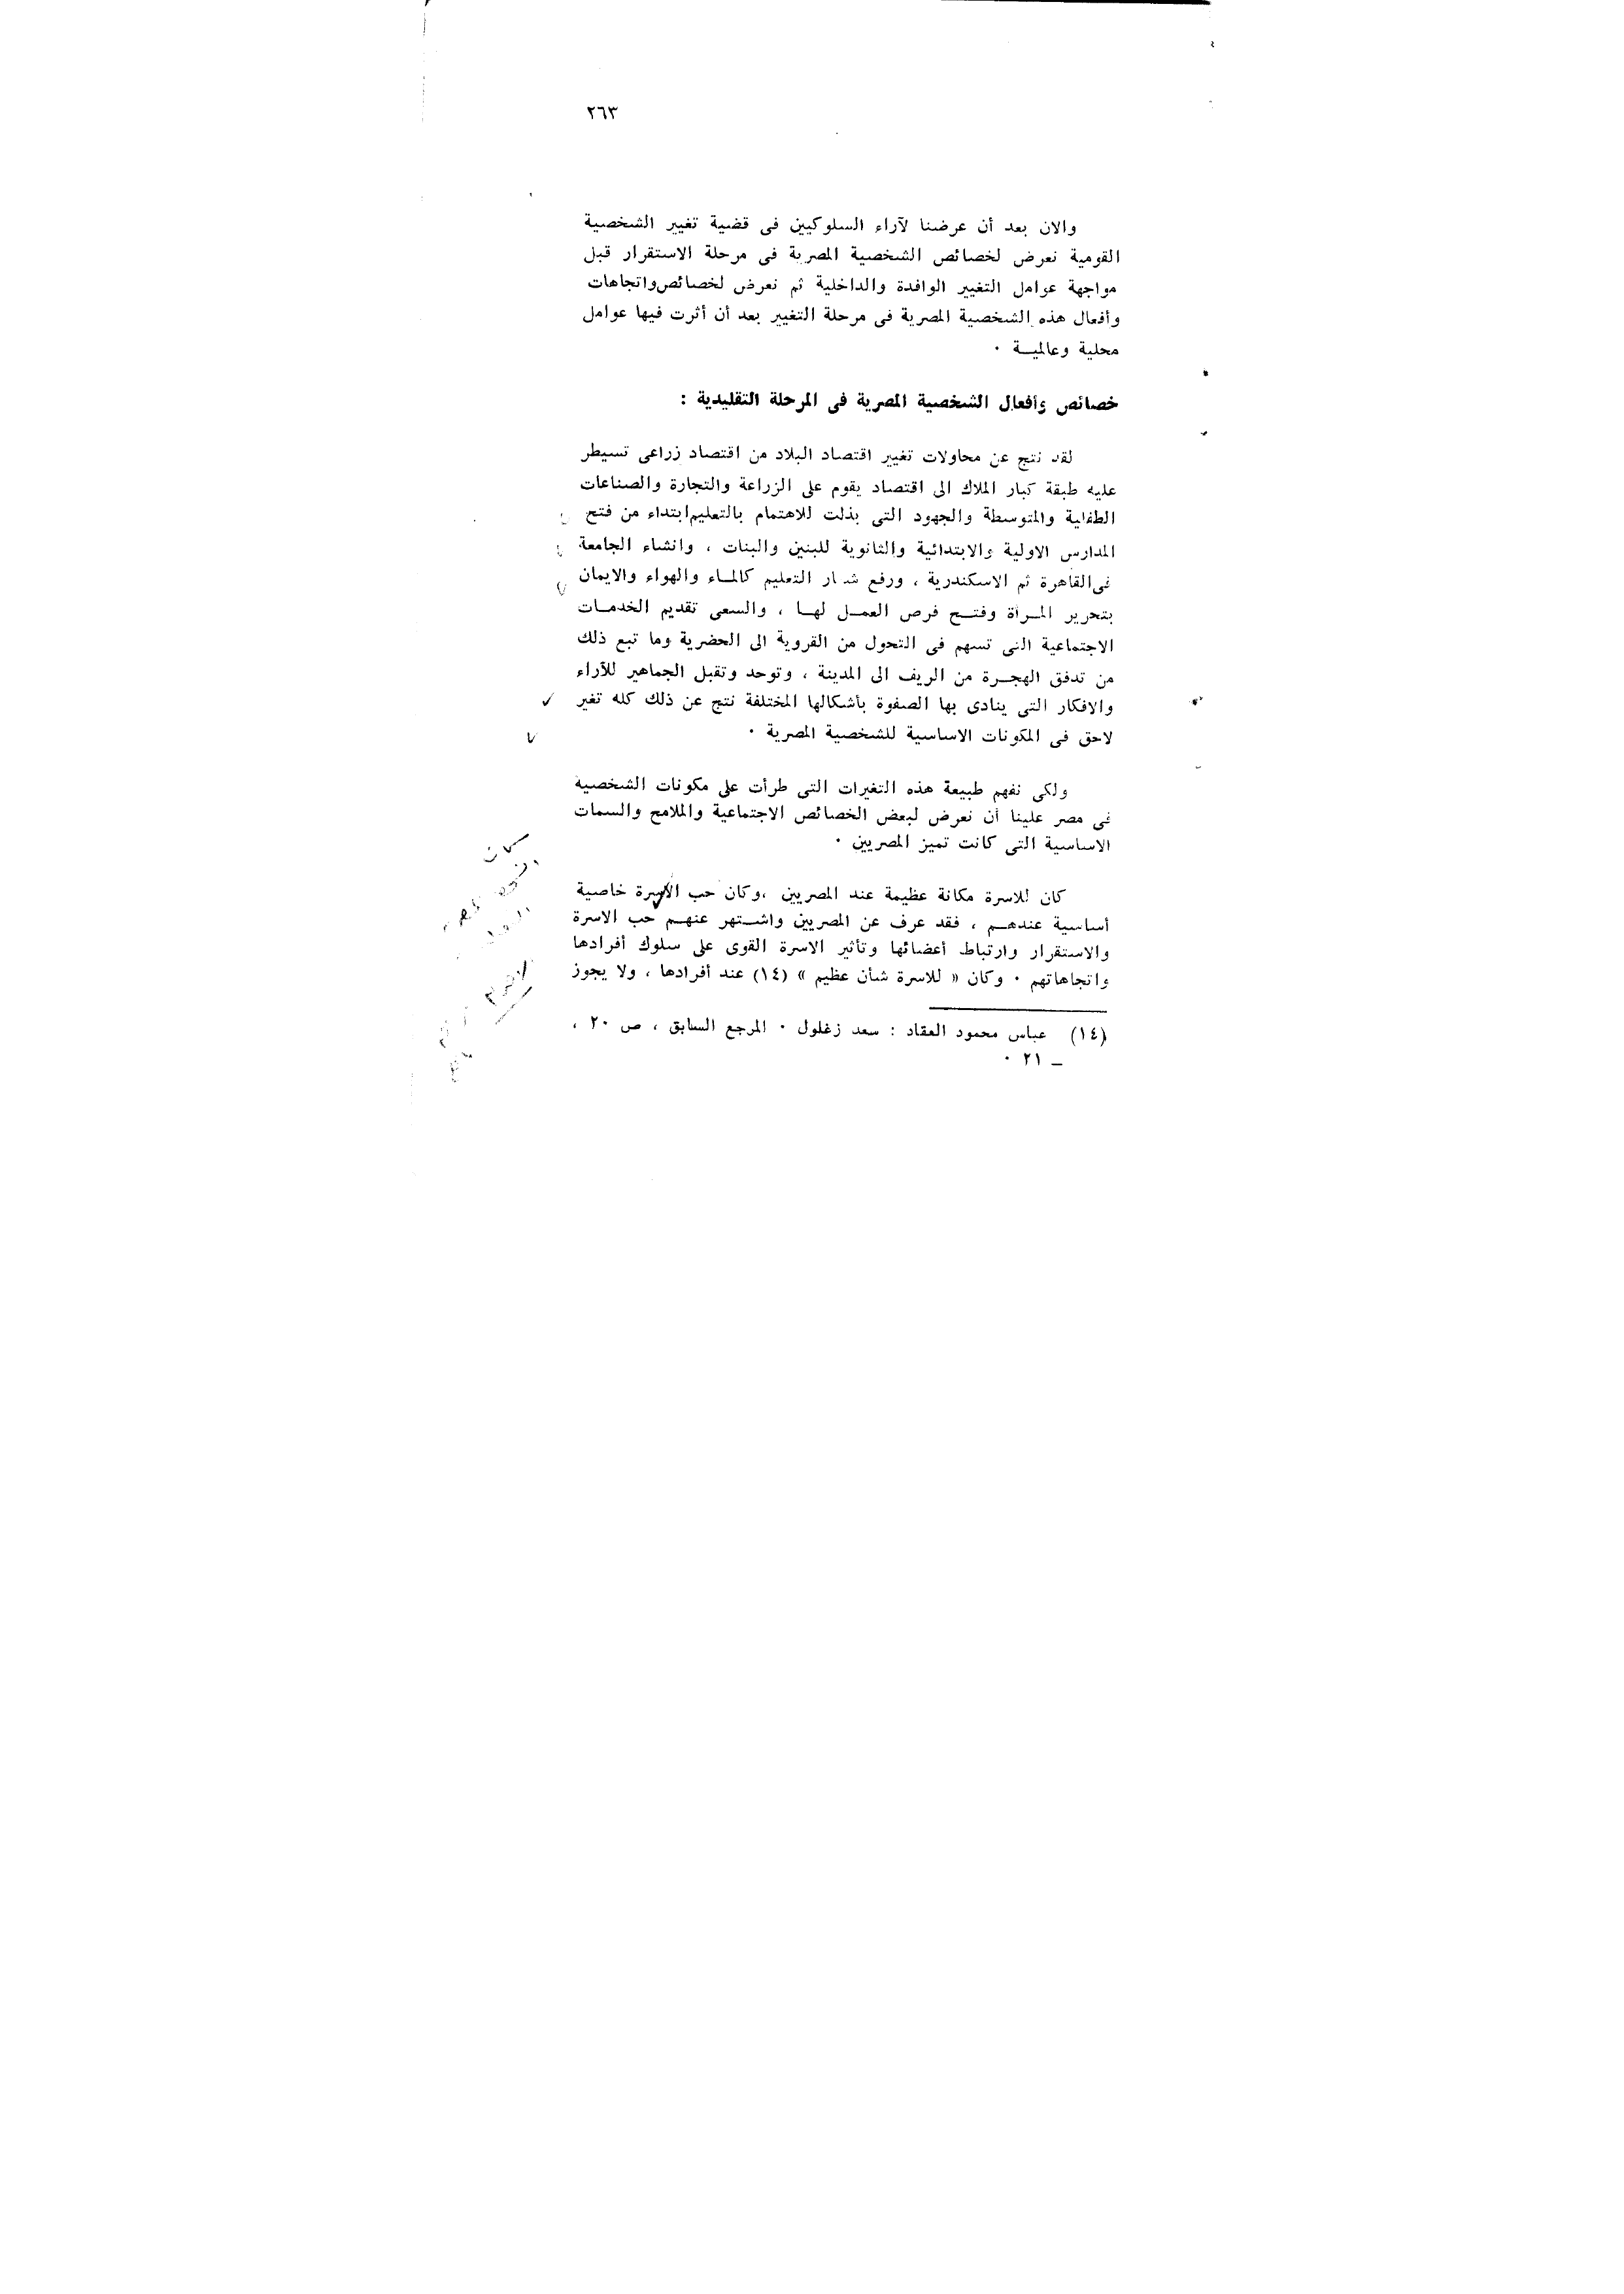 ٢٦٣
والان بعد أن عرضنا لآراء السلوكيين فى قضية تغيير الشخصية
القومية نعرض لخصائص الشخصية المصرية فى مرحلة الاستقرار قبل
مواجهة عوامل التغيير الوافدة والداخلية ثم نعرض لخصائص واتجاهات
وأفعال هذه الشخصية المصرية فى مرحلة التغيير بعد أن أثرت فيها عوامل
محلية وعالميـة ٠
خصائص وأفعال الشخصية المصرية فى المرحلة التقليدية :
لقد نتج عن محاولات تغيير اقتصاد البلاد من اقتصاد زراعى تسيطر
عليه طبقة كبار الملاك الى اقتصاد يقوم على الزراعة والتجارة والصناعات
والمتوسطة والجهود التى بذلت للاهتمام بالتعليم ابتداء من فتح
المدارس الاولية والابتدائية والثانوية للبنين والبنات ، وانشاء الجامعة
فى القاهرة ثم الاسكندرية ، ورفع شعار التعليم كالمـاء والهواء والايمان
بتحرير المـرأة وفتـح فرص العمـل لهـا ، والسعى تقديم الخدمـات
الاجتماعية التى تسهم فى التحول من القروية الى الحضرية وما تبع ذلك
من تدفق الهجـرة من الريف الى المدينة ، وتوحد وتقبل الجماهير للآراء
والافكار التى ينادى بها الصفوة بأشكالها المختلفة نتج عن ذلك كله تغير
لاحق فى المكونات الاساسية للشخصية المصرية ٠
ولكى نفهم طبيعة هذه التغيرات التى طرأت على مكونات الشخصية
فى مصر علينا أن نعرض لبعض الخصائص الاجتماعية والملامح والسمات
الاساسية التى كانت تميز المصريين ٠
كان للاسرة مكانة عظيمة عند المصريين ،وكان حب الأسرة خاصية
أساسية عندهـم ، فقد عرف عن المصريين واشـتهر عنهـم حب الاسرة
والاستقرار وارتباط أعضائها وتأثير الاسرة القوى على سلوك أفرادها
واتجاهاتهم ٠ وكان « للاسرة شأن عظيم » (١٤) عند أفرادها ، ولا يجوز
(١٤) عباس محمود العقاد : سعد زغلول ٠ المرجع السابق ، ص ٢٠ ،
ــ ٢١ ٠